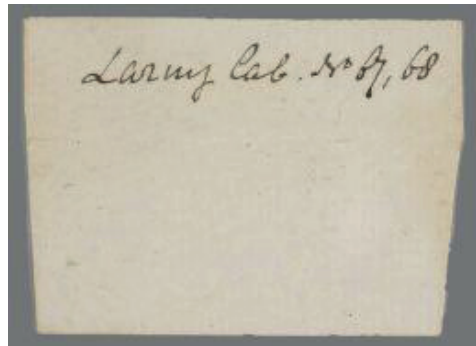 Larny Cab. No 67, 68